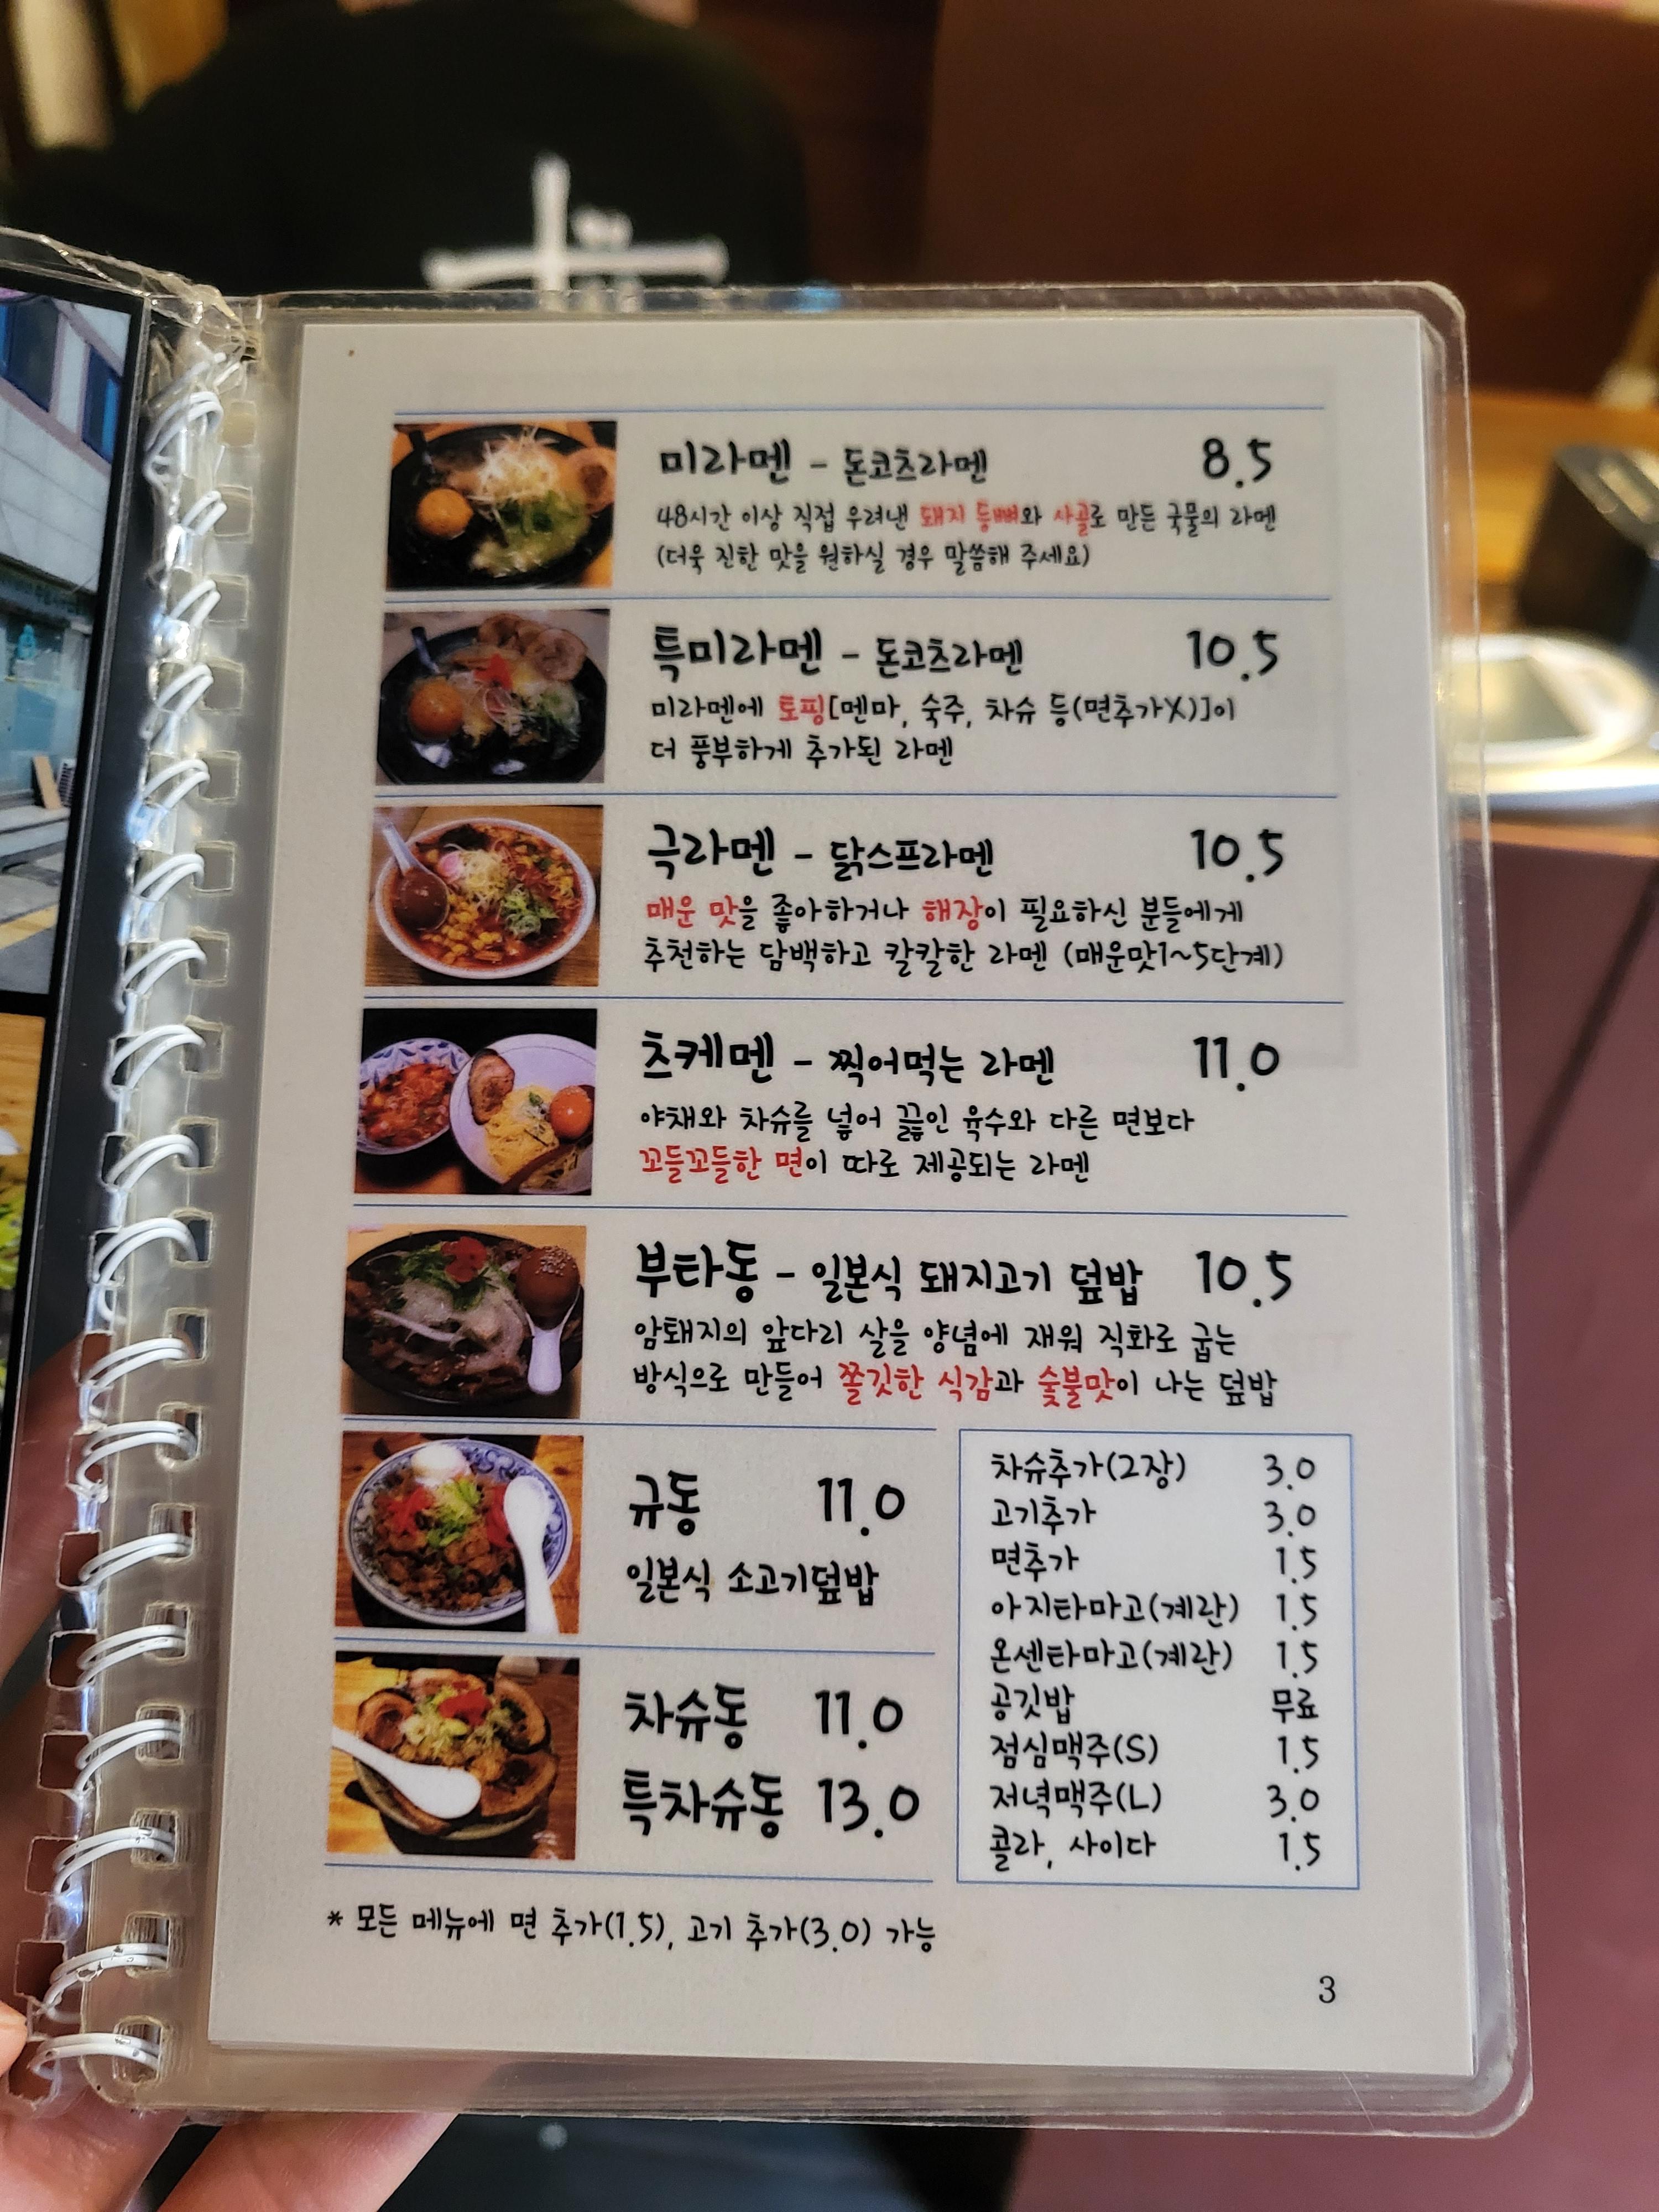 미라멘 - 돈코츠라멘 8.5
48시간 이상 직접 우려낸 돼지 등뼈와 사골로 만든 국물의 라멘
(더욱 진한 맛을 원하실 경우 말씀해 주세요)
특미라멘 - 돈코츠라멘 10.5
미라멘에 토핑[멘마, 숙주, 차슈 등(면추가X)]이
더 풍부하게 추가된 라멘
극라멘 - 닭스프라멘 10.5
매운 맛을 좋아하거나 해장이 필요하신 분들에게
추천하는 담백하고 칼칼한 라멘 (매운맛1~5단계)
츠케멘 - 찍어먹는 라멘 11.0
야채와 차슈를 넣어 끓인 육수와 다른 면보다
꼬들꼬들한 면이 따로 제공되는 라멘
부타동 - 일본식 돼지고기 덮밥 10.5
암퇘지의 앞다리 살을 양념에 재워 직화로 굽는
방식으로 만들어 쫄깃한 식감과 숯불맛이 나는 덮밥
규동 11.0
일본식 소고기덮밥
차슈동 11.0
특차슈동 13.0
차슈추가(2장) 3.0
고기추가 3.0
면추가 1.5
아지타마고(계란) 1.5
온센타마고(계란) 1.5
공깃밥 무료
점심맥주(S) 1.5
저녁맥주(L) 3.0
콜라, 사이다 1.5
* 모든 메뉴에 면 추가(1.5), 고기 추가(3.0) 가능
3